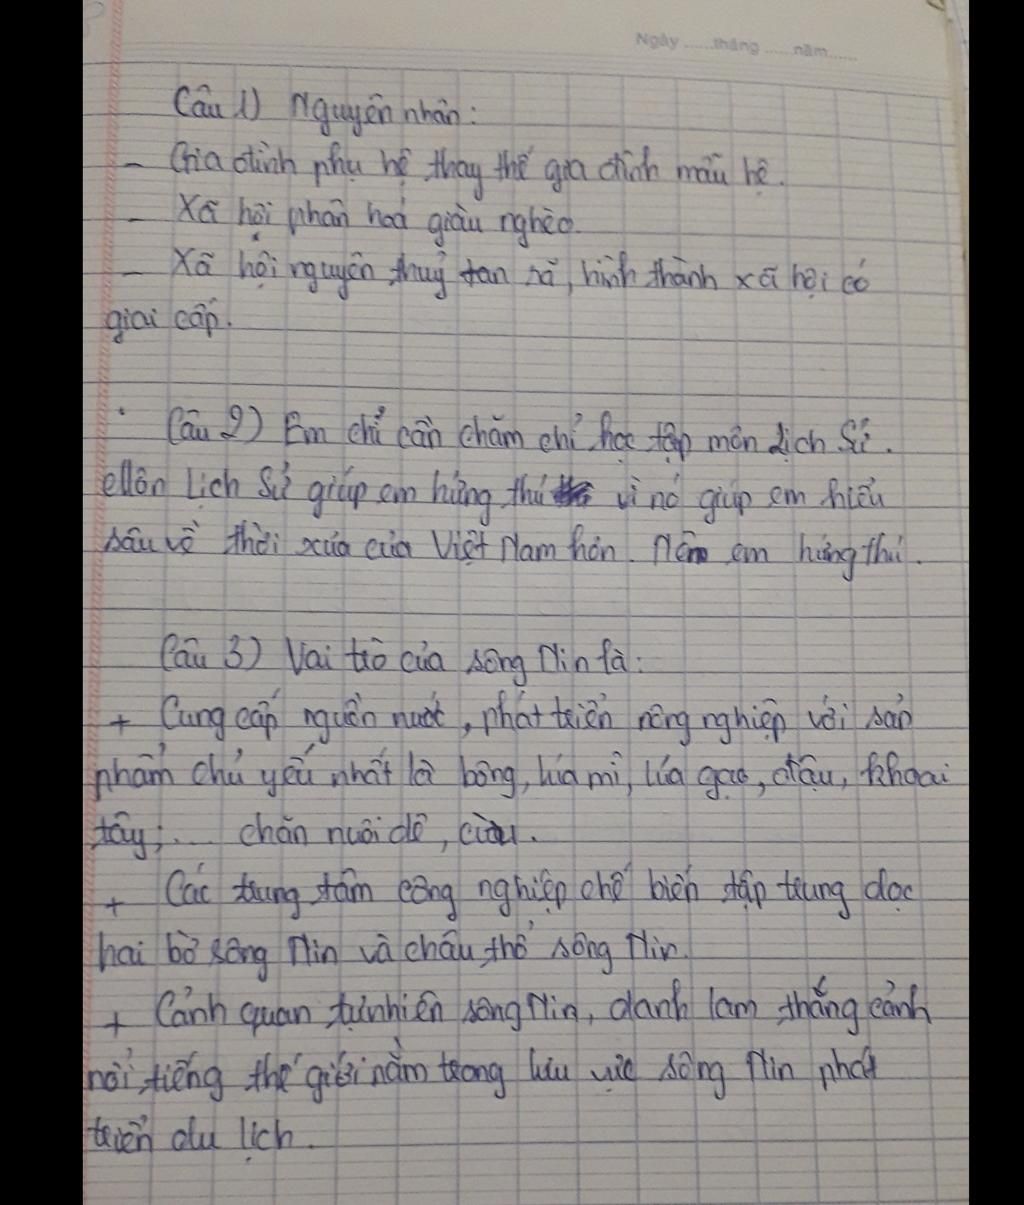 Ngày ......tháng ......năm......
Câu 1) Nguyên nhân:
- Gia đình phụ hệ thay thế gia đình mẫu hệ.
- Xã hội phân hoá giàu nghèo.
- Xã hội nguyên thuỷ tan rã, hình thành xã hội có
giai cấp.
Câu 2) Em chỉ cần chăm chỉ học tập môn Lịch Sử.
Môn Lịch Sử giúp em hứng thú vì nó giúp em hiểu
sâu về thời xưa của Việt Nam hơn. Nên em hứng thú.
Câu 3) Vai trò của sông Nin là:
+ Cung cấp nguồn nước, phát triển nông nghiệp với sản
phẩm chủ yếu nhất là bông, lúa mì, lúa gạo, đậu, khoai
tây;... chăn nuôi dê, cừu.
+ Các trung tâm công nghiệp chế biến tập trung dọc
hai bờ sông Nin và châu thổ sông Nin.
+ Cảnh quan tự nhiên sông Nin, danh lam thắng cảnh
nổi tiếng thế giới nằm trong lưu vực sông Nin phát
triển du lịch.